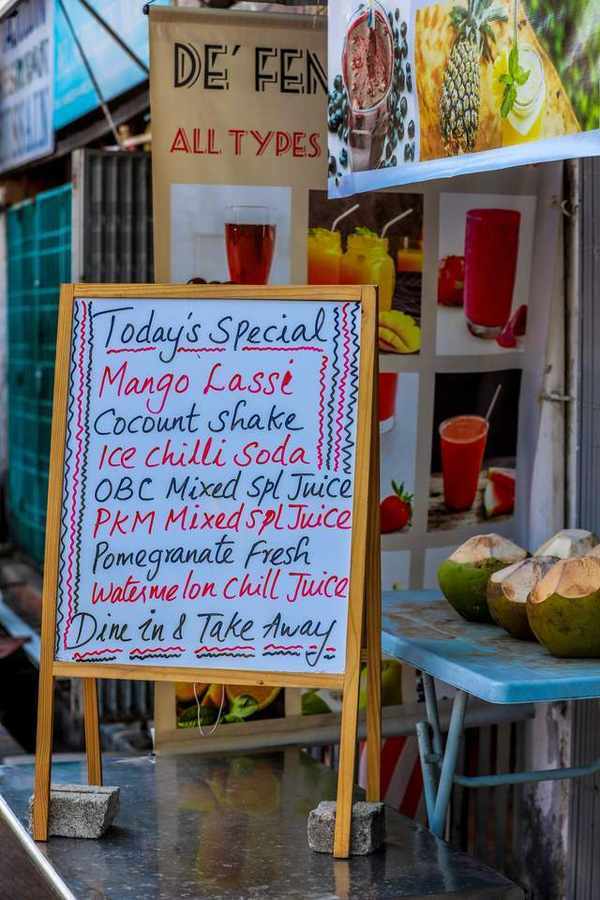 DE' FEN
ALL TYPES
Today's Special
Mango Lassi
Cocount Shake
Ice Chilli Soda
OBC Mixed Spl Juice
PKM Mixed Spl Juice
Pomegranate Fresh
Watermelon Chill Juice
Dine in & Take Away